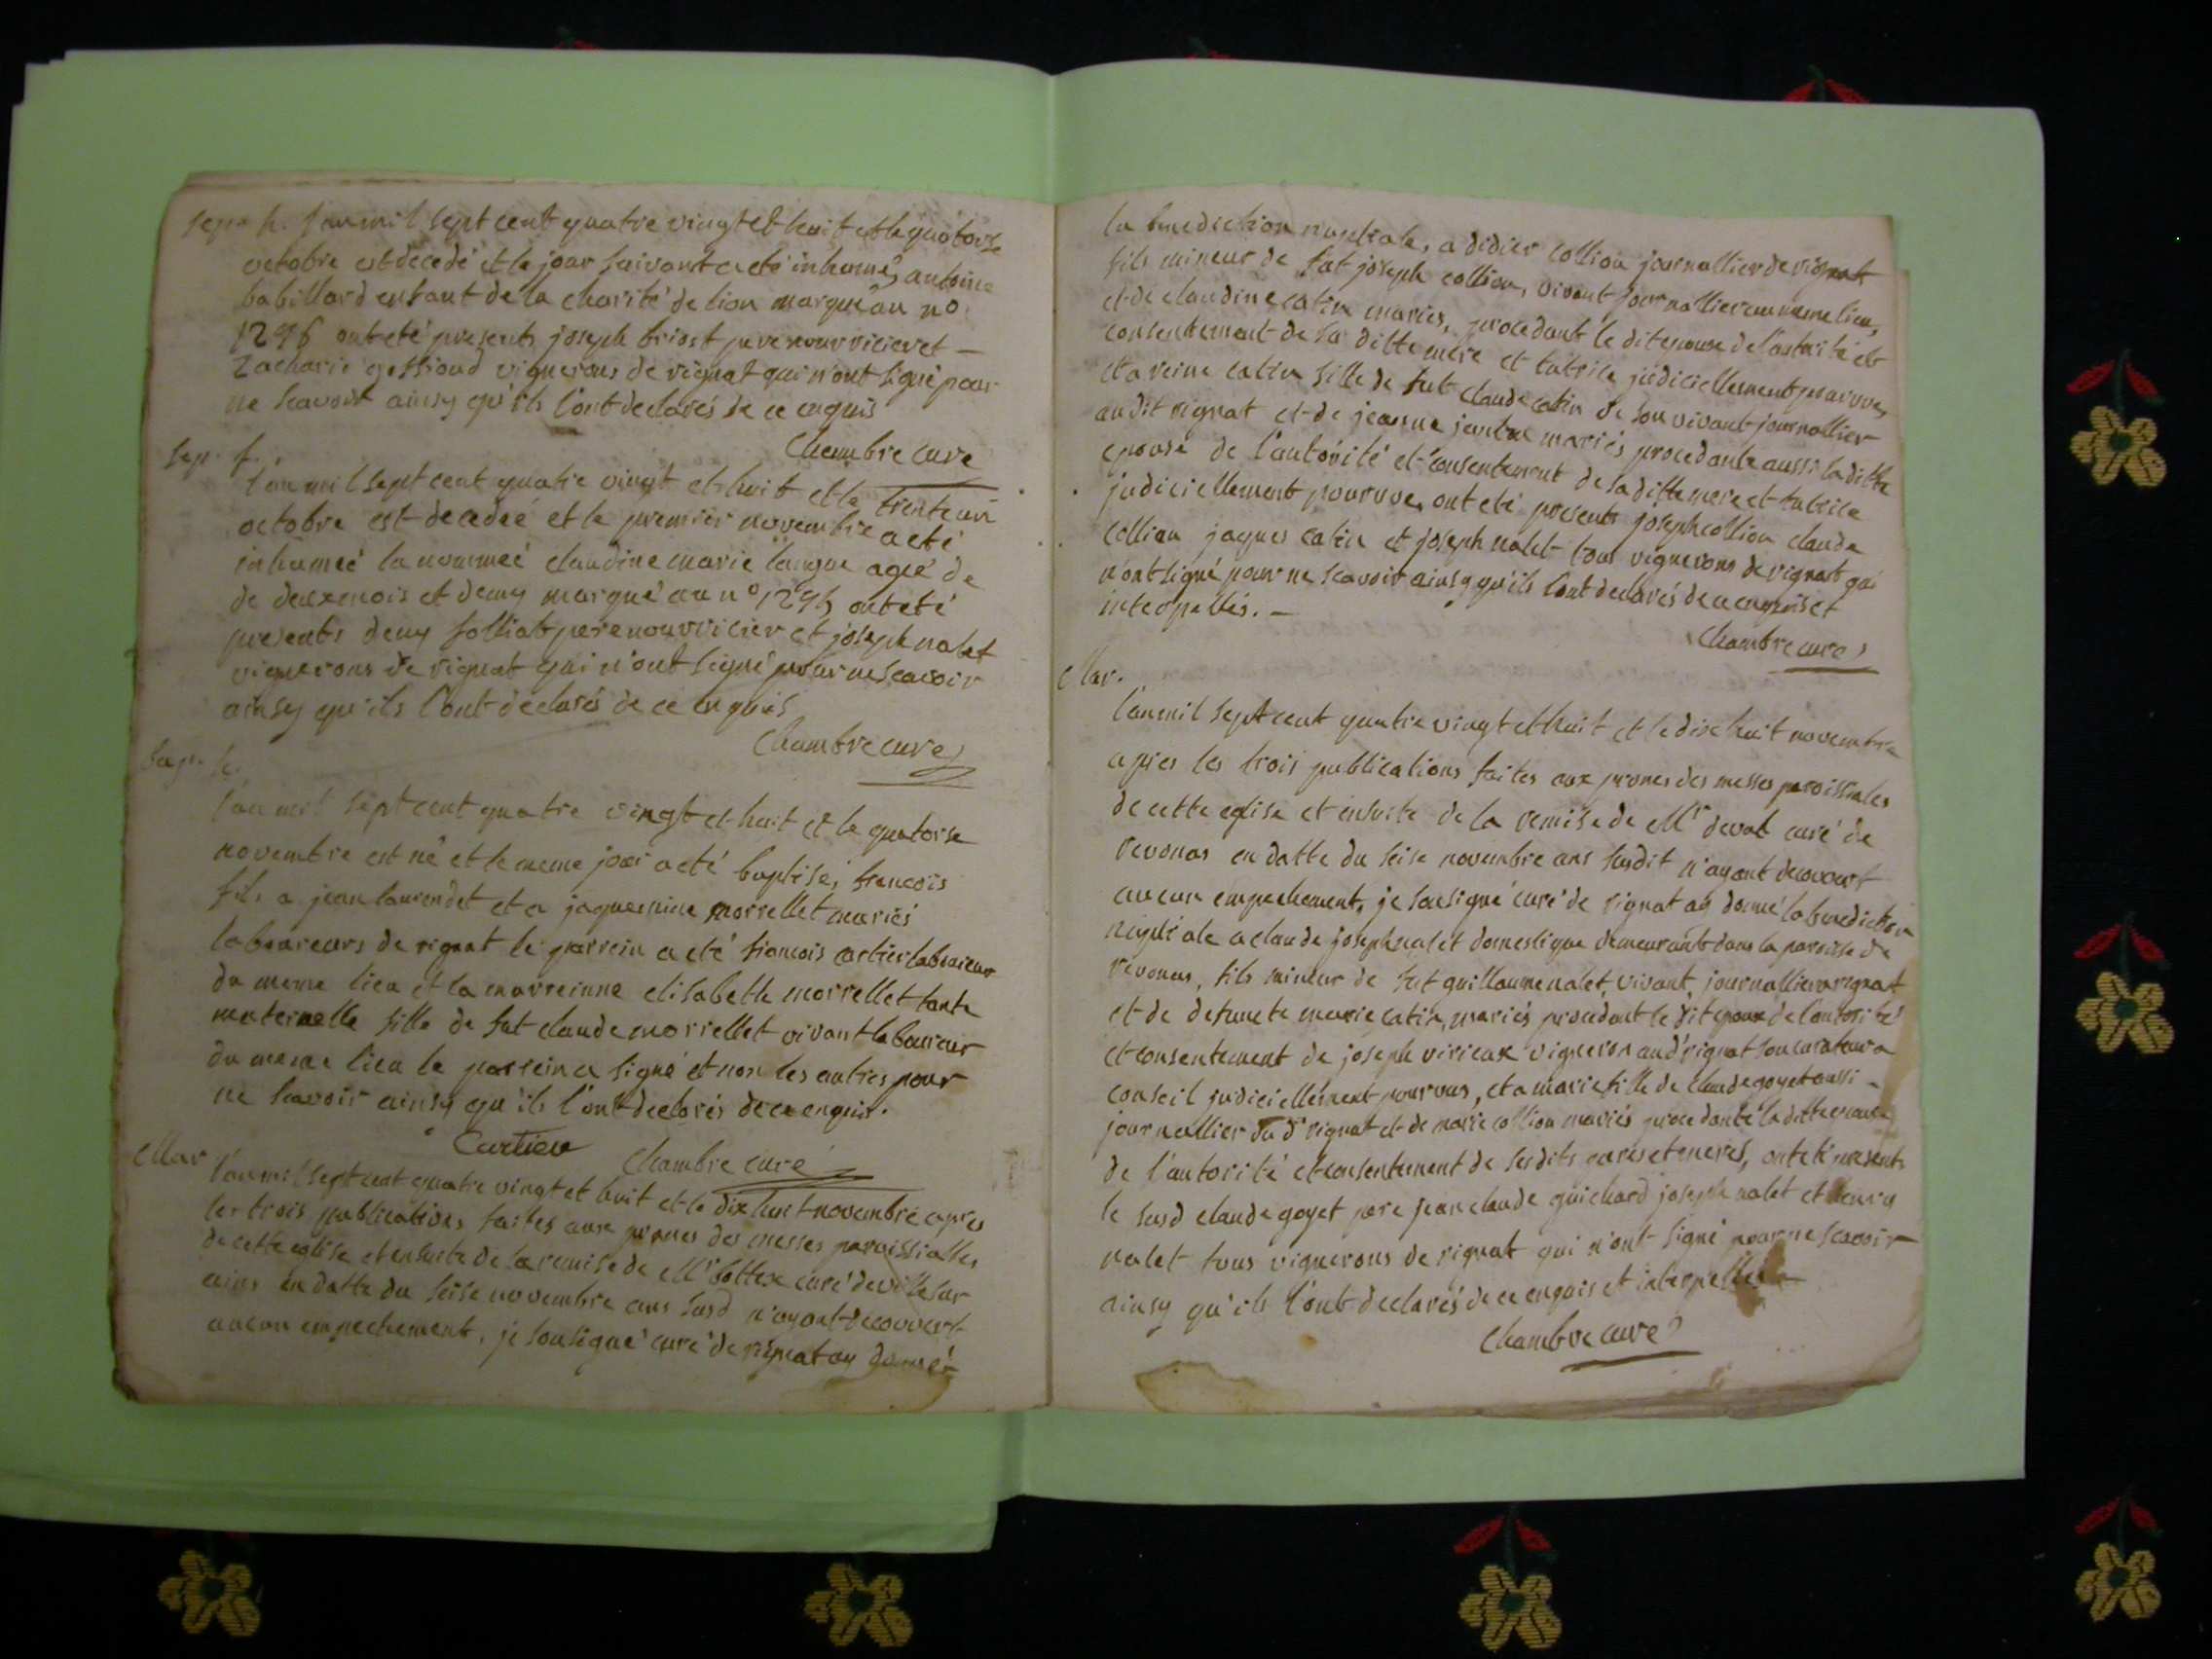 sep. h. l'an mil sept cent quatre vingt et huit et le quatorse
octobre est decedé et le jour suivant a eté inhumé, antoine
babillard enfant de la charité de lion marqué au no.
1296 ont eté presents joseph briost pere nourricier et —
Zacharie gossioud vignerons de rignat qui n'ont signé pour
ne scavoir ainsy qu'ils l'ont declarés de ce enquis
Chambre curé
sep. f.
l'an mil sept cent quatre vingt et huit et le trente un
octobre est decedeé et le premier novembre a eté
inhumeé la nommeé claudine marie langue ageé de
de deux mois et demy marqué au n° 1295 ont eté
presents deny folliat pere nourricier et joseph nalet
vignerons de rignat qui n'ont signé pour ne scavoir
ainsy qu'ils l'ont declarés de ce enquis
Chambre curé
bap. h.
l'an mil sept cent quatre vingt et huit et le quatorse
novembre est né et le meme jour a eté baptisé, francois
fils a jean laurendet et a jaquemine morrellet mariés
laboureurs de rignat le parrein a eté francois cartier laboureur
du meme lieu et la marreinne elisabette morrellet tante
maternelle fille de fut claude morrellet vivant laboureur
du meme lieu le parrein a signé et non les autres pour
ne scavoir ainsy qu'ils l'ont declarés de ce enquis.
Cartier Chambre curé
Mar l'an mil sept cent quatre vingt et huit et le dix huit novembre apres
les trois publications faites aux prones des messes paroissialles
de cette eglise et ensuite de la remise de Mr bottex curé de ville sur
ains en datte du seise novembre ans susd n'ayant decouvert
aucun empechement, je sousigné curé de rignat ay donné
la benediction nuptiale, a didier collion journallier de rignat
fils mineur de fut joseph collion, vivant journallier au meme lieu,
et de claudine catin mariés, procedant le dit epoux de l'autorité et
consentement de sa ditte mere et tutrice judiciellement pourvue,
et a reine catin fille de fut claude catin de son vivant journallier
au dit rignat et de jeanne mariés procedante aussi la ditte
epouse de l'autorité et consentement de sa ditte mere et tutrice
judiciellement pourvue, ont eté presents joseph collion claude
collion jaques catin et joseph nalet tous vignerons de rignat qui
n'ont signé pour ne scavoir ainsy qu'ils l'ont declarés de ce enquis et
interpellés. —
Chambre curé
Mar.
l'an mil sept cent quatre vingt et huit et le dix huit novembre
apres les trois publications faites aux prones des messes paroissiales
de cette eglise et ensuite de la remise de Mr devat curé de
revonas en datte du seise novembre ans susdit n'ayant decouvert
aucun empechement, je sousigné curé de rignat ay donné la benediction
nuptiale a claude joseph nalet domestique demeurant dans la paroisse de
revonas, fils mineur de fut guillaume nalet, vivant, journallier a rignat
et de defuncte marie catin, mariés procedant le dit epoux de l'autorité
et consentement de joseph virieux vigneron aud rignat son curateur a
conseil judiciellement pourvus, et a marie fille de claude goyet aussi
journallier du d rignat et de marie collion mariés procedante la ditte epouse
de l'autorité et consentement de ses dits peres et meres, ont eté presents
le susd claude goyet pere jean claude guichard joseph nalet et
nalet tous vignerons de rignat qui n'ont signé pour ne scavoir
ainsy qu'ils l'ont declarés de ce enquis et interpellés —
Chambre curé